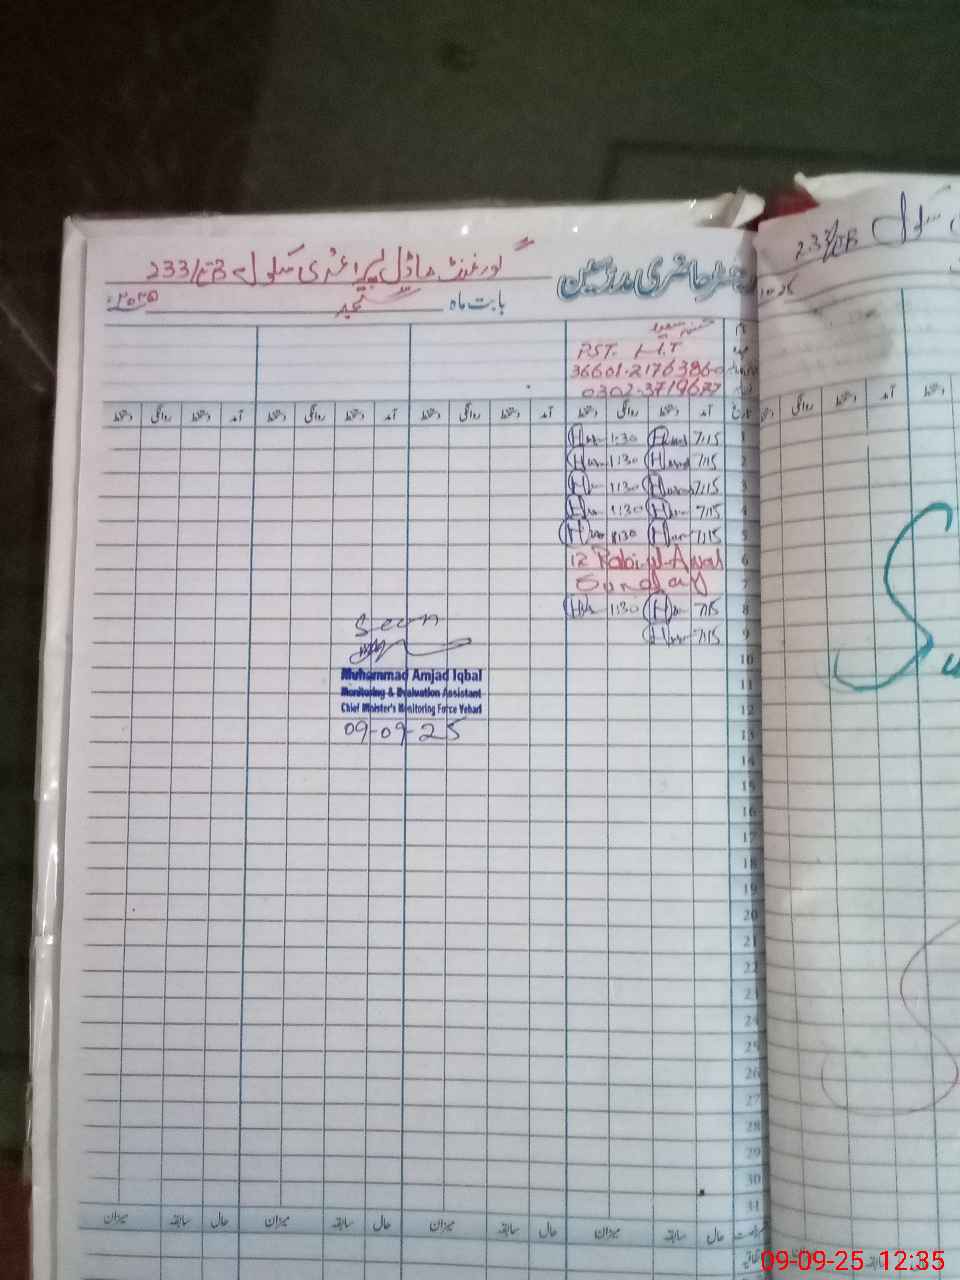 گورنمنٹ ماڈل پرائمری سکول 233/EB
رجسٹر حاضری مدرسین
بابت ماہ ستمبر ۲۰۲۵
233/EB سکول
PST. H.T
36601-2176386-0
آمد دستخط روانگی دستخط آمد دستخط روانگی دستخط آمد دستخط روانگی دستخط آمد دستخط روانگی دستخط
1 7:15 1:30
2 7:15 1:30
3 7:15 1:30
4 7:15 1:30
5 7:15 1:30
6 12 Rabi-ul-Awal
7 Sunday
8 7:15 1:30
9 7:15
Seen
Muhammad Amjad Iqbal
Monitoring & Evaluation Assistant
Chief Minister's Monitoring Force Vehari
09-09-25
10
11
12
13
14
15
16
17
18
19
20
21
22
23
24
25
26
27
28
29
30
31
حال سابقہ میزان حال سابقہ میزان حال سابقہ میزان حال سابقہ میزان
09-09-25 12:35